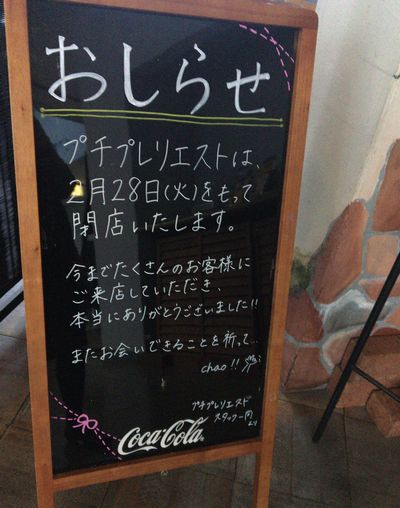 おしらせ
プチプレリエストは、
2月28日(火)をもって
閉店いたします。
今までたくさんのお客様に
ご来店していただき、
本当にありがとうございました!!
またお会いできることを祈って…
chao!!
プチプレリエスト
スタッフ一同
より
Coca-Cola